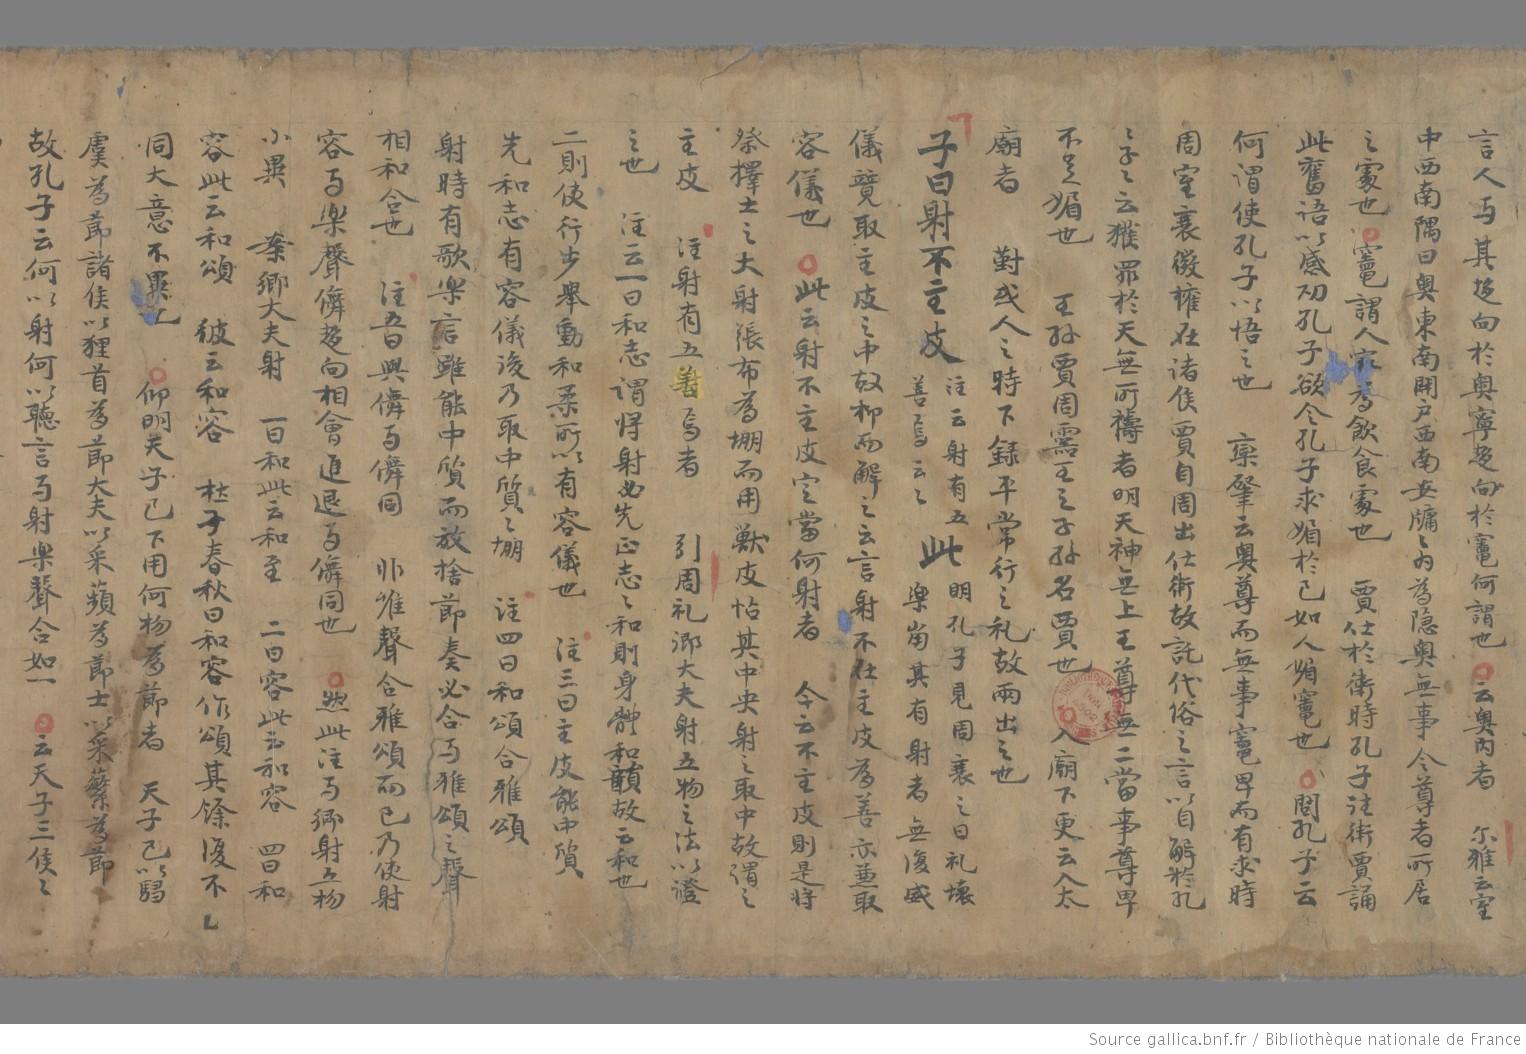 言人与其趍向於奥寧趍向於竈何謂也云奥内者 尒雅云室
中西南隅曰奥東南開户西南安牖〻内為隐奥無事今尊者所居
之處也竈謂人家為飲食處也 賈仕於衛時孔子詿衛賈誦
此舊語以感切孔子欲令孔子求媚於己如人媚竈也 問孔子云
何謂使孔子以悟之也 欒肇云奥尊而無事竈卑而有求時
周室衰微權在諸侯賈自周出仕衛故託代俗之言以自解於孔
〻子〻云獲罪於天無所禱者明天神無上王尊無二當事尊卑
不足媚也 王孫賈周霊王之子孫名賈也 入廟下更云入太
廟者 對或人之時下録平常行之礼故兩出之也
子曰射不主皮 注云射有五善焉云〻 此明孔子見周衰之日礼壊樂崩其有射者無復威
儀競取主皮之中故抑而解之云言射不在主皮為善亦兼取
容儀也 此云射不主皮定當何射者 今云不主皮則是將
祭擇士之大射張布為堋而用獸皮怗其中央射之取中故謂之
主皮 注射有五善焉者 引周礼郷大夫射五物之法以證
之也 注云一曰和志謂将射必先正志〻和則身體和韻故云和也
二則使行步舉動和柔所以有容儀也 注三曰主皮能中質
先和志有容儀後乃取中質〻堋 注四曰和頌合雅頌
射時有歌樂言雖能中質而放捨節奏必合与雅頌之聲
相和合也 注五曰興儛与儛同 非唯聲合雅頌而已乃使射
容与樂聲儛趍向相會進退与儛同也 然此注与郷射五物
小異 案郷大夫射 一曰和此云和至 二曰容此云和容 四曰和
容此云和頌 彼云和容 杜子春秋曰和容作頌其餘復不
同大意不異 仰明天子已下用何物為節者 天子已以騶
虞為節諸侯以狸首為節大夫以采蘋為節士以采蘩為節
故孔子云何以射何以聽言与射樂聲合如一 云天子三侯〻
Source gallica.bnf.fr / Bibliothèque nationale de France